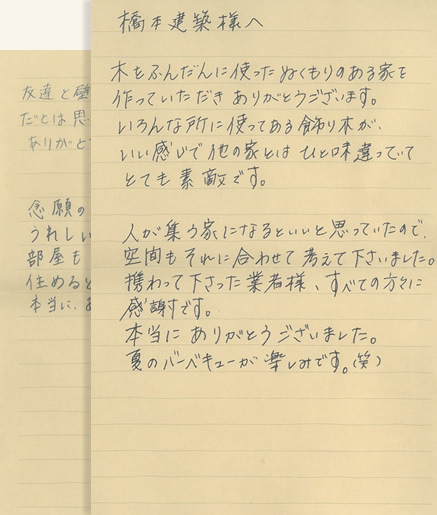 橋本建築様へ
木もふんだんに使ったぬくもりのある家を
作っていただき ありがとうございます。
いろんな所に使ってある飾り木が、
いい感じで他の家とは ひと味違っていて
とても素敵です。
人が集う家になるといいと思っていたので、
空間もそれに合わせて考えて下さいました。
携わって下さった業者様、すべての方々に
感謝です。
本当に ありがとうございました。
夏のバーベキューが楽しみです。(笑)
友達と
だとは思
ありがと
念願の
うれしい
部屋も
住めると
本当に、